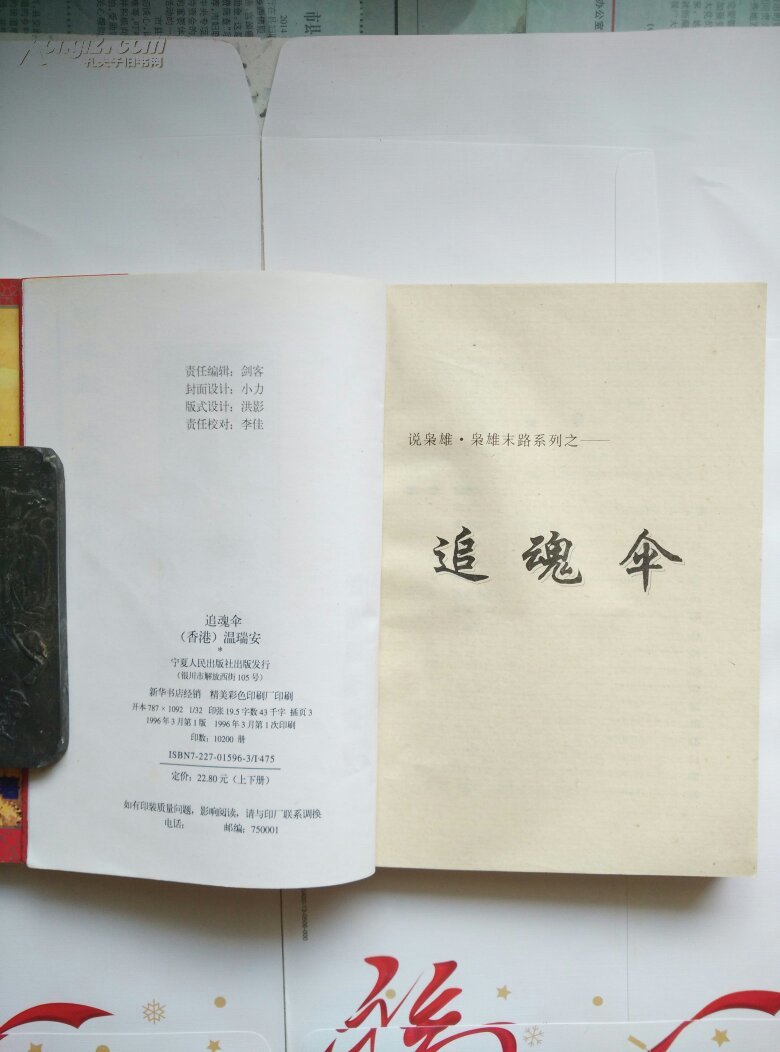 孔夫子旧书网
责任编辑：剑客
封面设计：小力
版式设计：洪影
责任校对：李佳
追魂伞
（香港）温瑞安
*
宁夏人民出版社出版发行
（银川市解放西街105号）
新华书店经销 精美彩色印刷厂印刷
开本787×1092 1/32 印张19.5 字数43千字 插页3
1996年3月第1版 1996年3月第1次印刷
印数：10200 册
ISBN7-227-01596-3/I·475
定价：22.80元（上下册）
如有印装质量问题，影响阅读，请与印厂联系调换
电话： 邮编：750001
说枭雄·枭雄末路系列之——
追魂伞